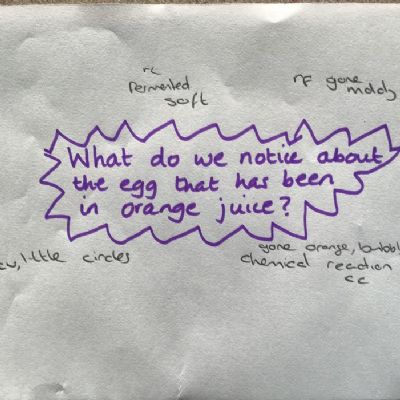 rc
fermented
soft
nf gone
moldy
What do we notice about
the egg that has been
in orange juice?
little circles
gone orange, bubbl
chemical reaction